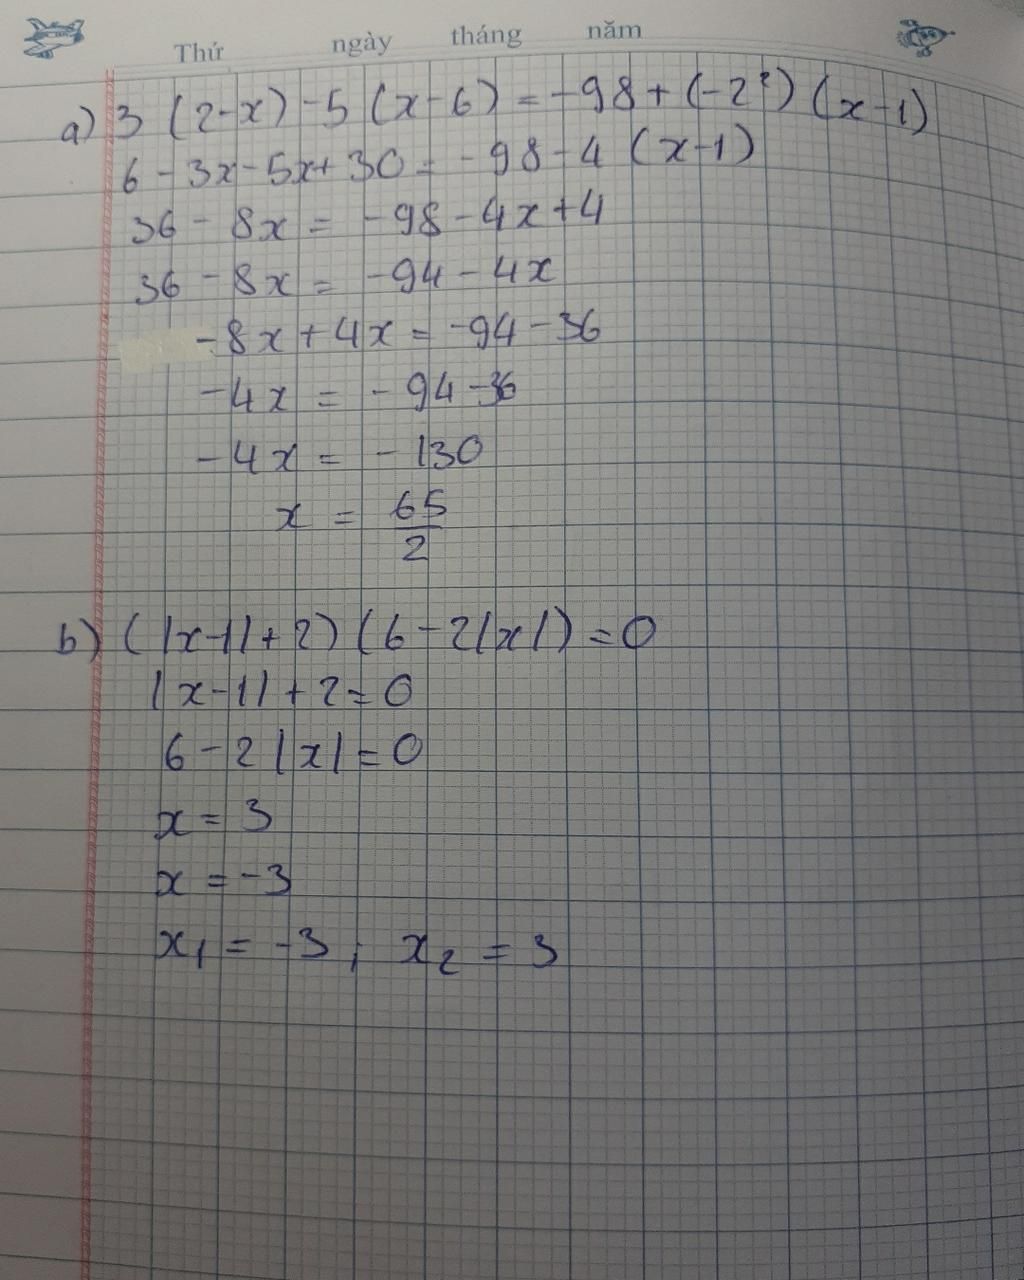 Thứ ngày tháng năm
a) 3 (2-x) -5 (x-6) = -98 + (-2²) (x-1)
6 - 3x - 5x + 30 = -98 - 4 (x-1)
36 - 8x = -98 - 4x + 4
36 - 8x = -94 - 4x
-8x + 4x = -94 - 36
-4x = -94 - 36
-4x = -130
x = 65/2
b) (|x-1| + 2) (6 - 2|x|) = 0
|x-1| + 2 = 0
6 - 2|x| = 0
x = 3
x = -3
x₁ = -3 ; x₂ = 3